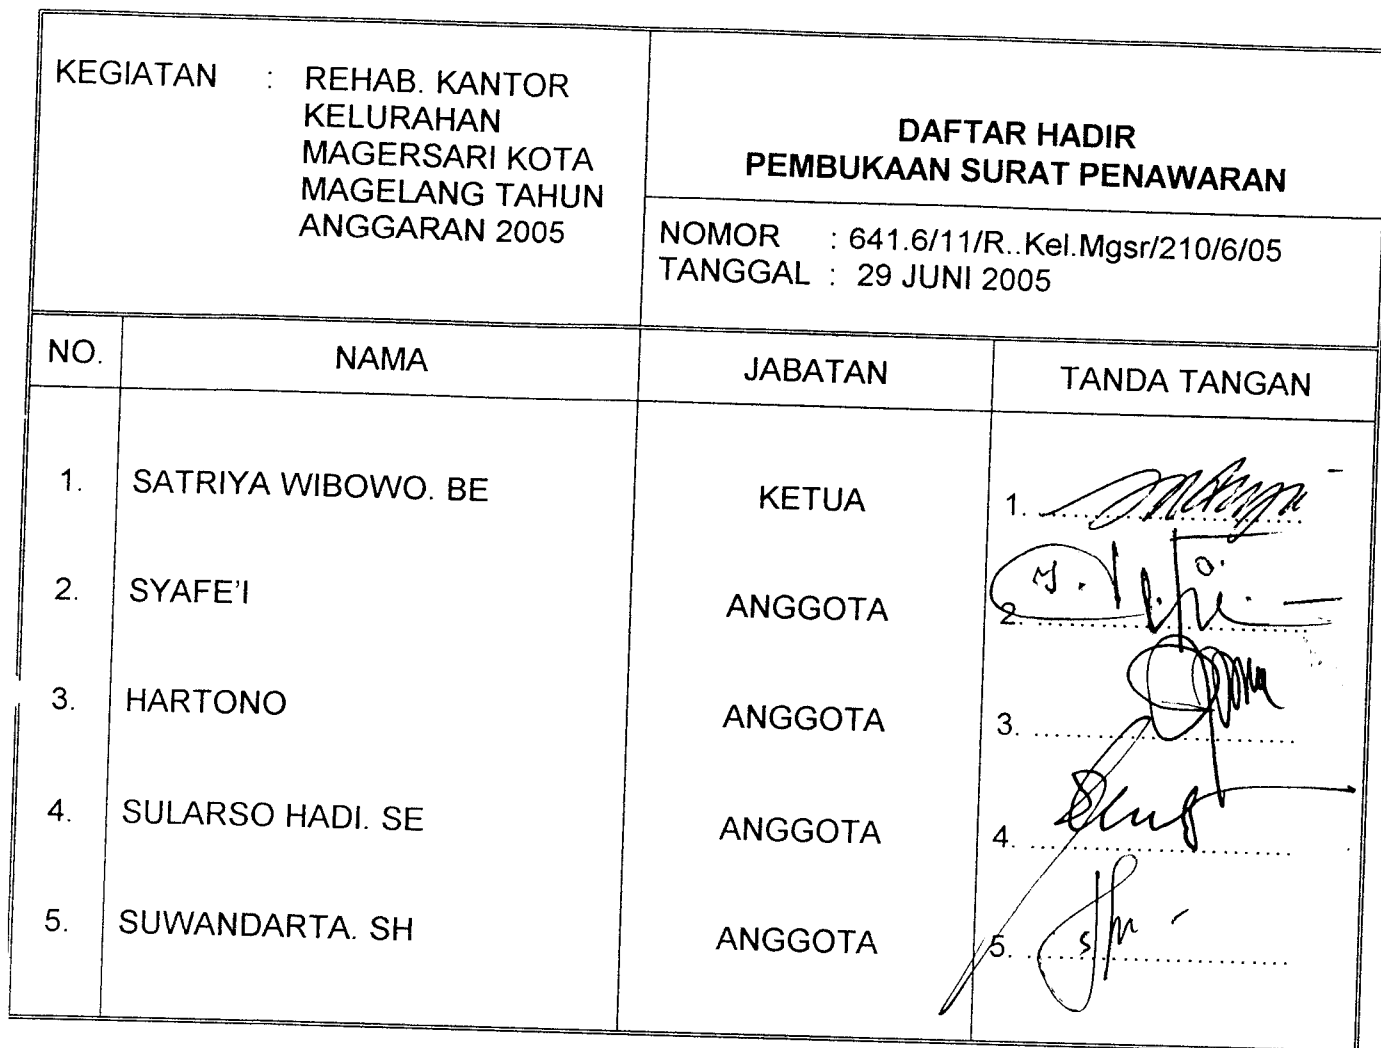 KEGIATAN : REHAB. KANTOR
KELURAHAN
MAGERSARI KOTA
MAGELANG TAHUN
ANGGARAN 2005
DAFTAR HADIR
PEMBUKAAN SURAT PENAWARAN
NOMOR : 641.6/11/R..Kel.Mgsr/210/6/05
TANGGAL : 29 JUNI 2005
NO. NAMA JABATAN TANDA TANGAN
1. SATRIYA WIBOWO. BE KETUA 1.
2. SYAFE'I ANGGOTA 2.
3. HARTONO ANGGOTA 3.
4. SULARSO HADI. SE ANGGOTA 4.
5. SUWANDARTA. SH ANGGOTA 5.